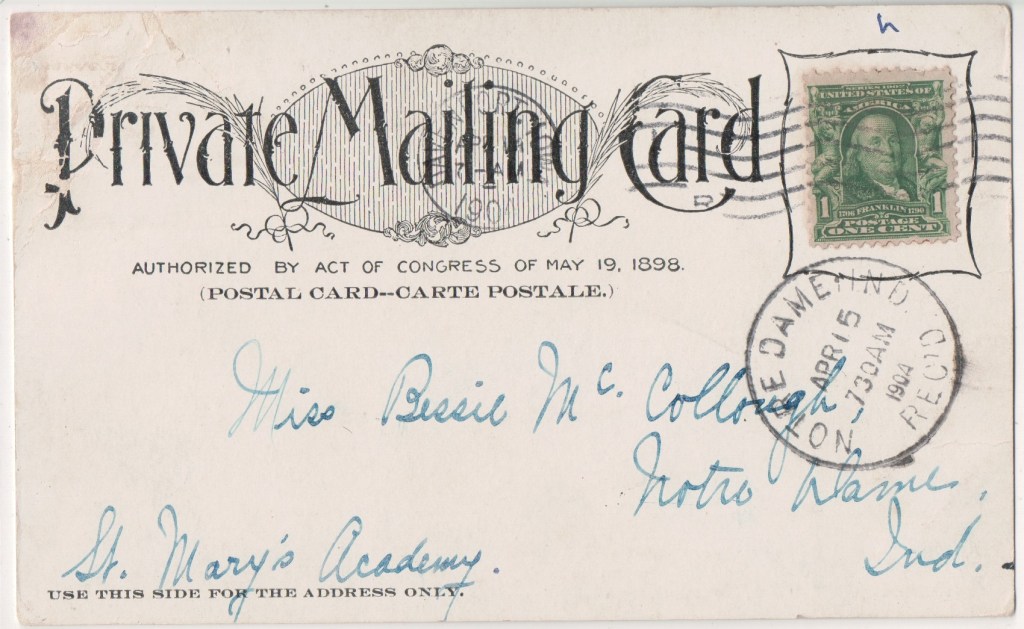 h
Private Mailing Card
1904
B
SERIES 1902
UNITED STATES OF
AMERICA
1706 FRANKLIN 1790
1 POSTAGE 1
ONE CENT
AUTHORIZED BY ACT OF CONGRESS OF MAY 19, 1898.
(POSTAL CARD--CARTE POSTALE.)
NOTRE DAME IND.
APR 15
730AM
1904
REC'D
Miss Bessie Mc. Collough,
Notre Dame,
Ind.
St. Mary's Academy.
USE THIS SIDE FOR THE ADDRESS ONLY.